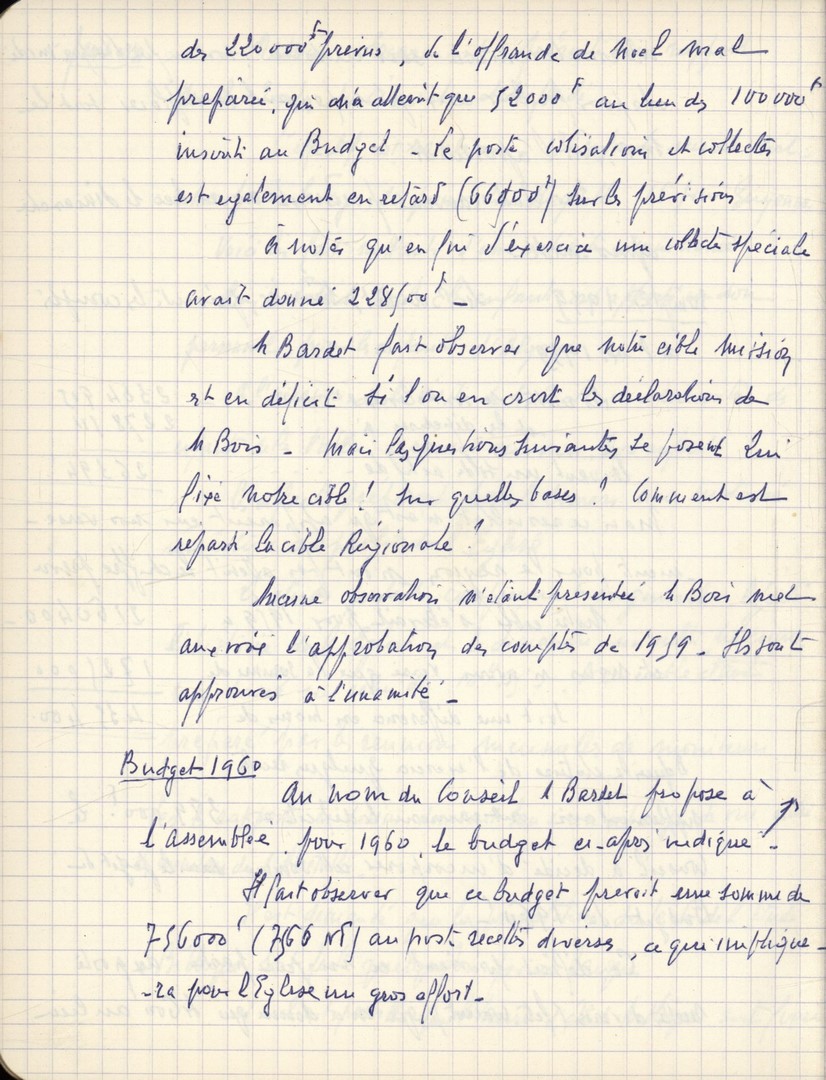 des 220000F prévus, de l'offrande de Noel mal
préparée, qui n'a atteint que 52000F au lieu des 100000F
inscrits au Budget - Le poste cotisations et collectes
est egalement en retard (66000F) sur les prévisions
A noter qu'en fin d'exercice une collecte spéciale
avait donné 228500F -
M Bardet fait observer que notre cible mission
est en déficit si l'on en croit les déclarations de
M Bois - Mais les questions suivantes se posent Qui
fixe notre cible ! Sur quelles bases ? Comment est
reparti la cible Régionale ?
Aucune observation n'etant présentée M Bois met
aux voix l'approbation des comptes de 1959 - Ils sont
approuvés à l'unamité -
Budget 1960
Au nom du Conseil M Bardet propose à
l'assemblée, pour 1960, le budget ci-après indiqué -
Il fait observer que ce budget prevoit une somme de
756000F (7560 NF) au poste recettes diverses, ce qui implique-
-ra pour l'Eglise un gros effort -